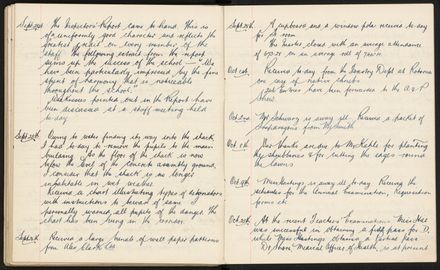 Sept 23rd The Inspectors' Report came to hand. This is
of a uniformly good character and reflects the
greatest credit on every member of the
staff. The following extract from the report
sums up the success of the school — "We
have been particularly impressed by the fine
spirit of harmony that is noticeable
throughout the school."
Weaknesses pointed out in the Report have
been discussed at a staff meeting held
to-day.
Sept 25th Owing to water finding its way into the shack
I had to-day to remove the pupils to the main
building. As the floor of the shack is now
below the level of the cement assembly ground,
I consider that the shack is no longer
habitable in wet weather.
Received a chart illustrating types of detonators
with instructions to beware of same. I
personally warned all pupils of the danger. The
chart has been hung in the corridor.
Sept 26th Received a large bundle of wall paper patterns
from Alex Clark
Sept 30th A cupboard and a window pole received to-day
for S room
The quarter closed with an average attendance
of in an average roll of
Oct 1st Received to-day from the Forestry Dept at Rotorua
an of native shrubs
Entries have been forwarded to the A & P
Show.
Oct 2nd Miss is away ill. Received a packet of
from
Oct 8th This broke away to McKenzie for planting
the shrubberies & for cutting the edges round
the lawns
Oct 9th Miss Hastings is away ill to-day. Received the
schedules for the Annual Examination, Requisition
forms etc
Oct 20th At the recent Teachers Examinations Miss
was successful in obtaining a full pass for D,
while Miss Hastings obtained a partial pass
Dr Medical Officer of Health, is at present